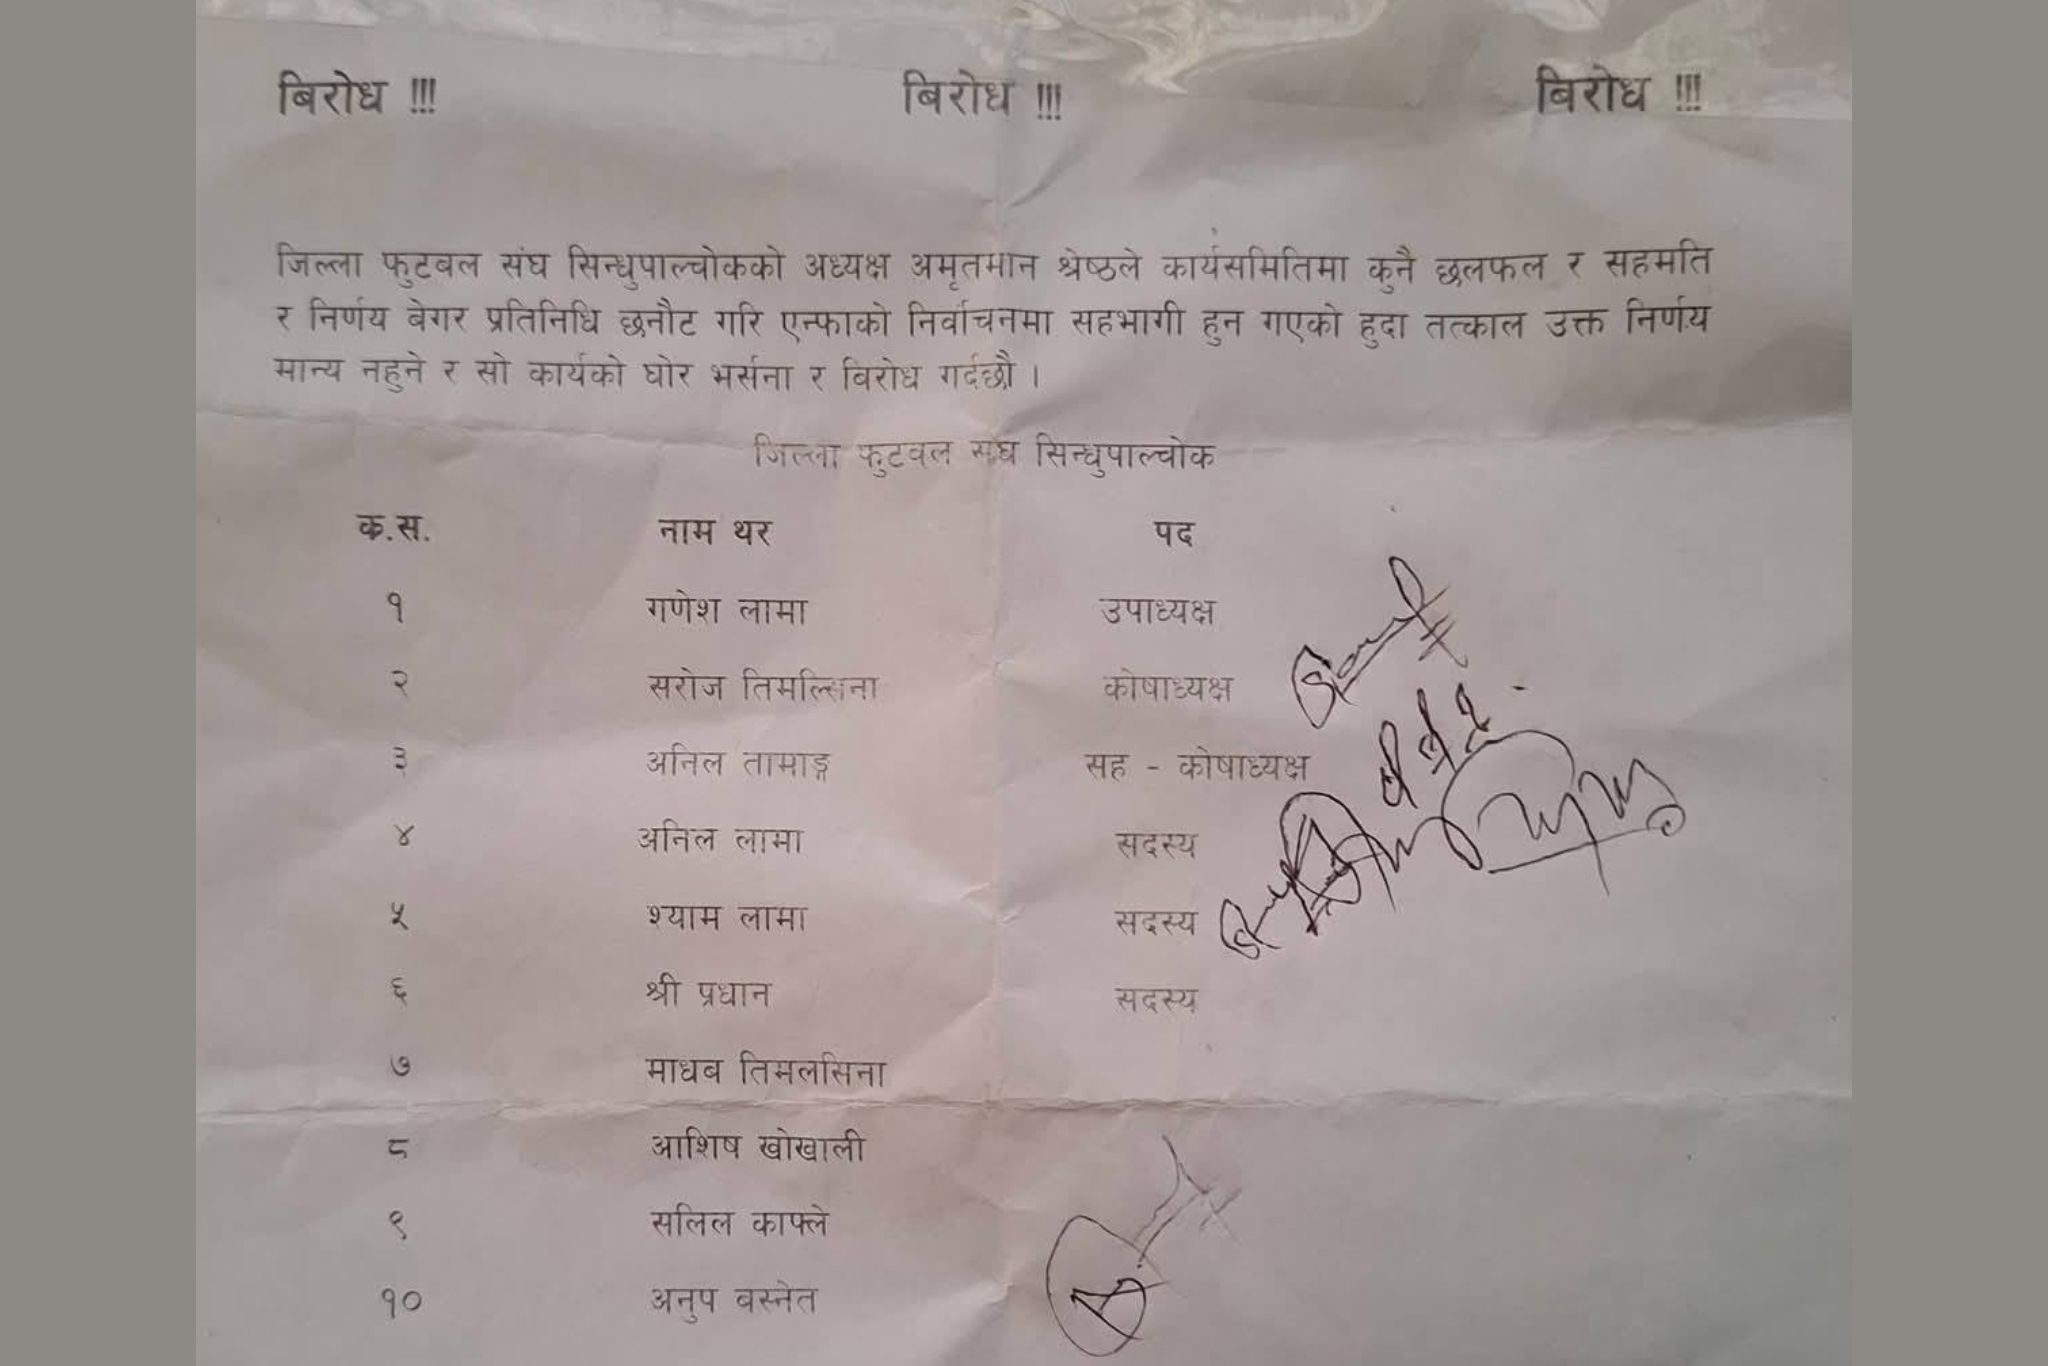 बिरोध !!! बिरोध !!! बिरोध !!!
जिल्ला फुटबल संघ सिन्धुपाल्चोकको अध्यक्ष अमृतमान श्रेष्ठले कार्यसमितिमा कुनै छलफल र सहमति
र निर्णय बेगर प्रतिनिधि छनौट गरि एन्फाको निर्वाचनमा सहभागी हुन गएको हुदा तत्काल उक्त निर्णय
मान्य नहुने र सो कार्यको घोर भर्सना र बिरोध गर्दछौ ।
जिल्ला फुटवल संघ सिन्धुपाल्चोक
क.स. नाम थर पद
१ गणेश लामा उपाध्यक्ष
२ सरोज तिमल्सिना कोषाध्यक्ष
३ अनिल तामाङ्ग सह - कोषाध्यक्ष
४ अनिल लामा सदस्य
५ श्याम लामा सदस्य
६ श्री प्रधान सदस्य
७ माधब तिमलसिना
८ आशिष खोखाली
९ सलिल काफ्ले
१० अनुप बस्नेत